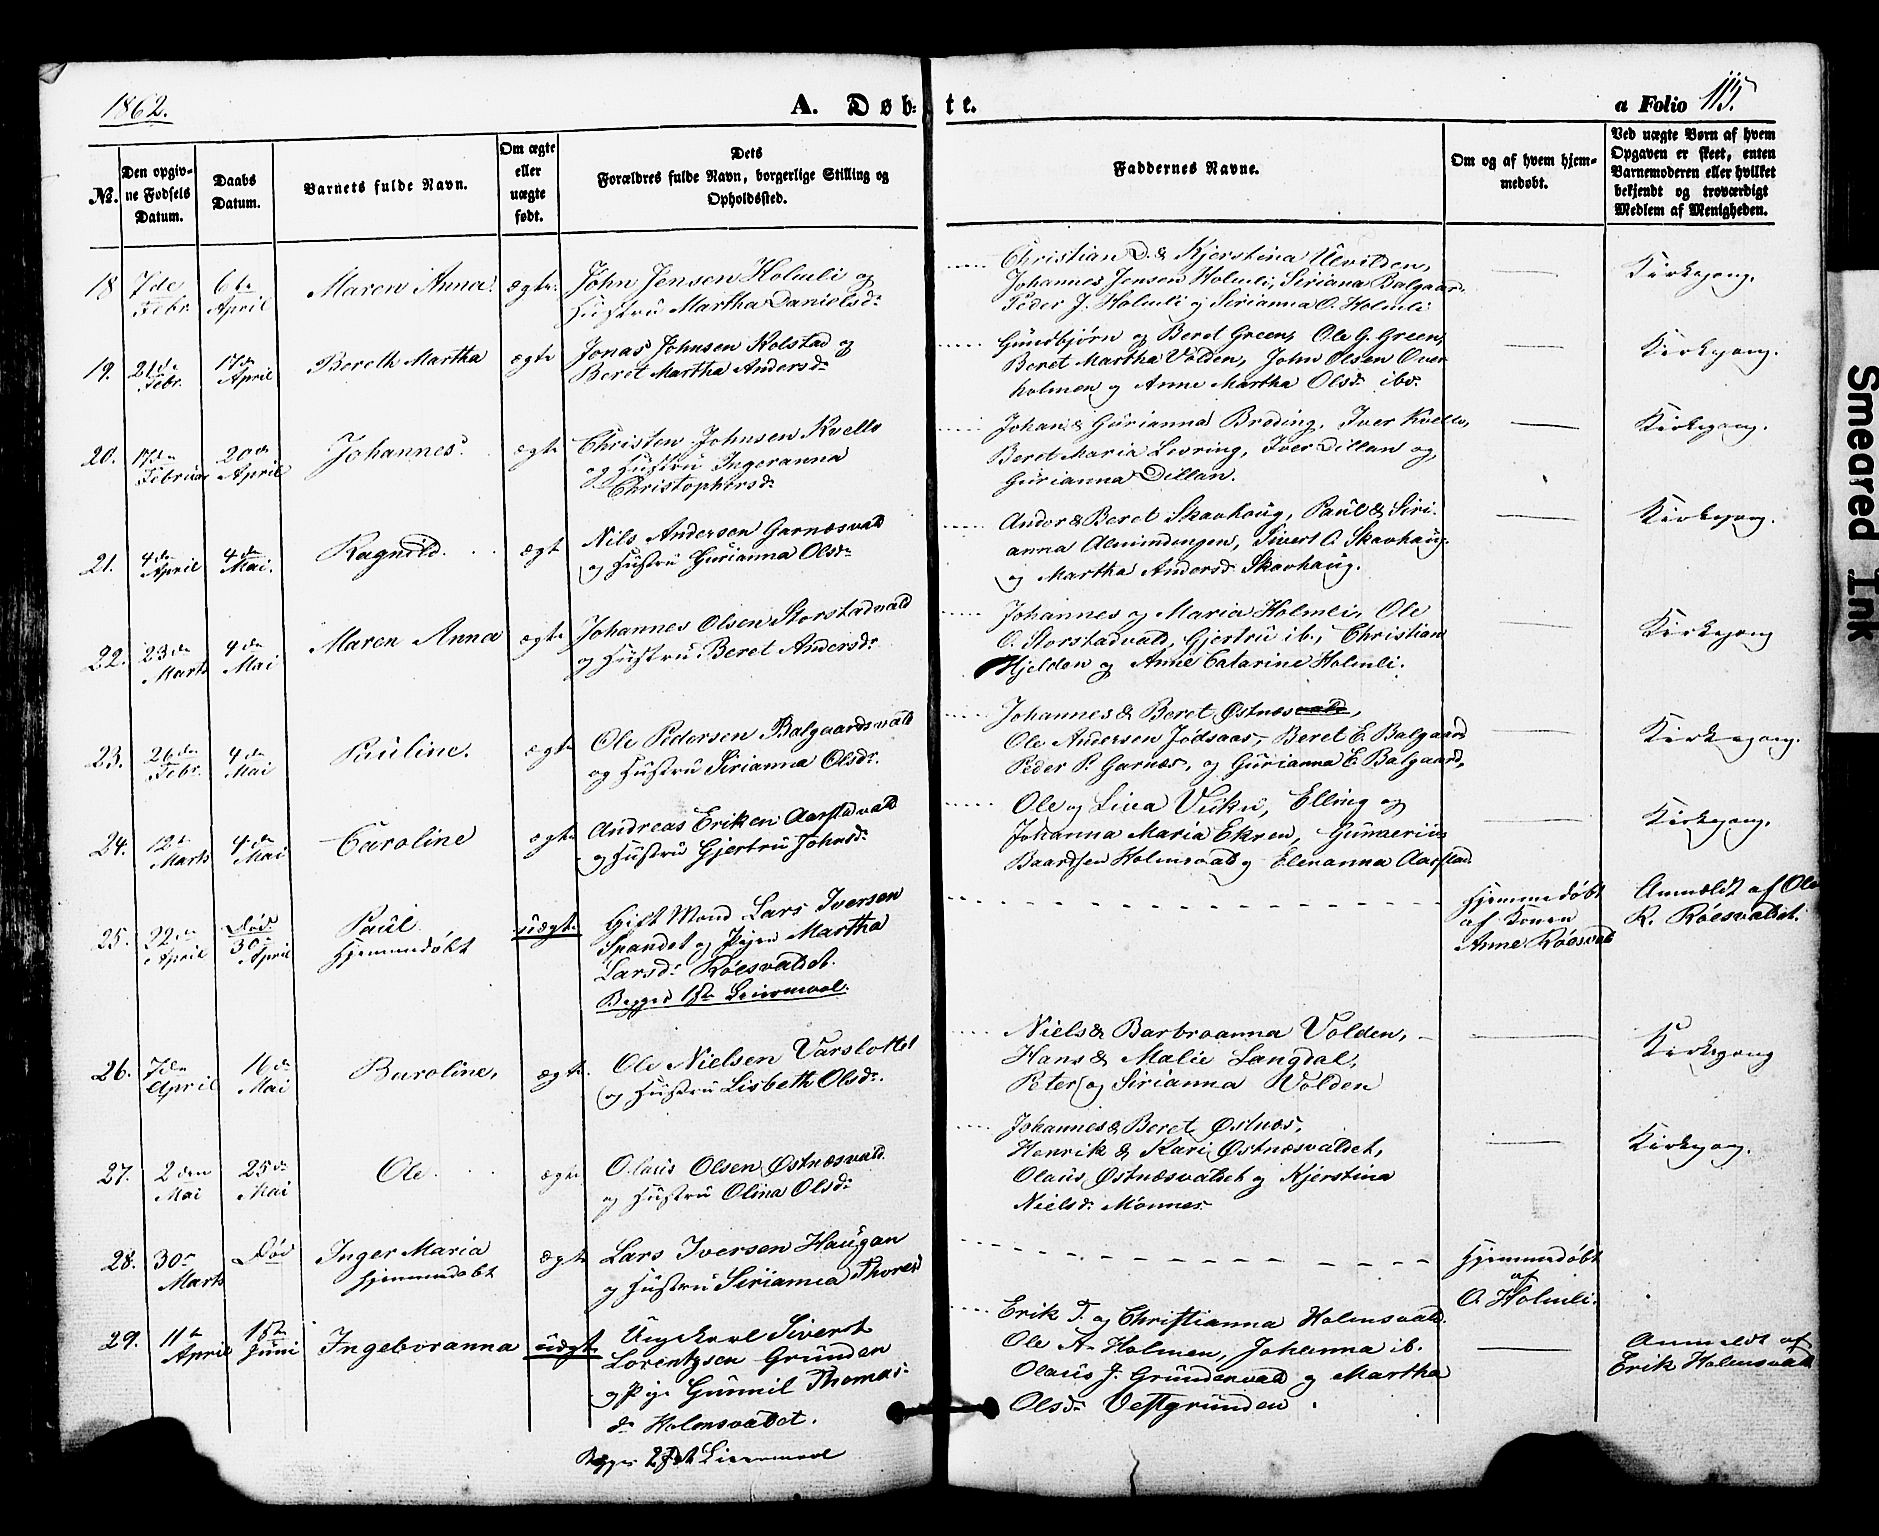 1862.
A. Døb- te.
a Folio 115.
№.
Den opgivne Fødsels Datum.
Daabs Datum.
Barnets fulde Navn.
Om ægte eller uægte født.
Dets Forældres fulde Navn, borgerlige Stilling og Opholdssted.
Faddernes Navne.
Om og af hvem hjemmedøbt.
Ved uægte Børn af hvem Opgaven er skeet, enten Barnemoderen eller hvilket bekjendt og troværdigt Medlem af Menigheden.
18 7de Febr. 6te April Maren Anna. ægte.
John Jensen Holmli og
Hustru Martha Danielsd:
Christian D. & Kjerstina Ulvilden,
Johannes Jensen Holmli, Siriana Balgaard.
Peder J. Holmli og Sirianna O. Holmli
Kirkegang.
19. 21de Febr. 17de April Bereth Martha ægte
Jonas Johnsen Kolstad og
Beret Martha Andersd:
Gundbjørn og Beret Green, Ole G. Green,
Beret Martha Volden, John Olsen Over
holmen og Anne Martha Olsd: ibd.
Kirkegang.
20. 17de Februar 20de April Johannes. ægte
Christen Johnsen Kvello
og Hustru Ingeranna
Christophersd:
Johan & Gurianna Breding, Iver Kvello,
Beret Maria Levring, Iver Dillan og
Gurianna Dillan.
Kirkegang.
21. 4de April 4de Mai. Ragnild. ægt
Nils Andersen Garnæsvald
og Hustru Gurianna Olsd:
Andor & Beret Skavhaug, Paul & Siri-
anna Almindingen, Sivert O. Skavhaug
og Martha Andersd: Skavhaug.
Kirkegang.
22. 23de Marts 4de Mai Maren Anna ægte
Johannes Olsen Storstadvald
og Hustru Beret Andersd:
Johannes og Maria Holmli, Ole
O. Storstadvald, Gjertru ib., Christian
Hjelden og Anne Catarine Holmli.
Kirkegang
23. 26de Febr. 4de Mai Pauline. ægte
Ole Pedersen Balgaardsvald
og Hustru Sirianna Olsd:
Johannes & Beret Østnæsvald,
Ole Andersen Jødsaas, Beret E. Balgaard
Peder P. Garnæs, og Gurianna E. Balgaard,
Kirkegang.
24. 12te Marts 4de Mai Caroline ægte
Andreas Eriksen Aarstadvald
og Hustru Gjertru Johnsd:
Ole og Lina Vuku, Elling og
Johanna Maria Ekren, Gunnerius
Baardsen Holmsvald og Elenanna Aarstad
Kirkegang.
25. 22de April Død 30te April Paul Hjemmedøbt uægte
Gift Mand Lars Iversen
Spandet og Pigen Martha
Larsd: Róesvaldet.
Begges 1ste Leiermaal.
Hjemmedøbt
af Konen
Anne Róesvald
Anmeldt af Ole
K. Róesvaldet.
26. 7de April 16de Mai Buroline, ægte.
Ole Nielsen Varslottet
og Hustru Lisbeth Olsd:.
Niels & Barbroanna Volden,
Hans & Malie Langdal,
Peter og Sirianna Volden
Kirkegang
27. 2den Mai 25de Mai Ole. ægte
Olaus Olsen Østnæsvald
og Hustru Olina Olsd:
Johannes & Beret Østnæs,
Henrik & Kari Østnæsvaldet,
Olaus Østnæsvaldet og Kjerstina
Nielsd: Mönnes.
Kirkegang.
28. 30te Marts Død Inger Maria Hjemmedøbt ægte
Lars Iversen Haugan
og Hustru Sirianna Thoresd
Hjemmedøbt
af
O. Holmli.
29. 11te April 1ste Juni Ingeboranna uægt.
Ungkarl Sivert
Lorentzsen Grunden
og Pige Gunnil Thomas-
d: Holmsvaldet.
Begges 2det Leiermaal
Erik T. og Christianna Holmsvald.
Ole A. Holmen, Johanna ib.
Olaus J. Grundenvald og Martha
Olsd: Vestgrunden.
Anmeldt af
Erik Holmsvald